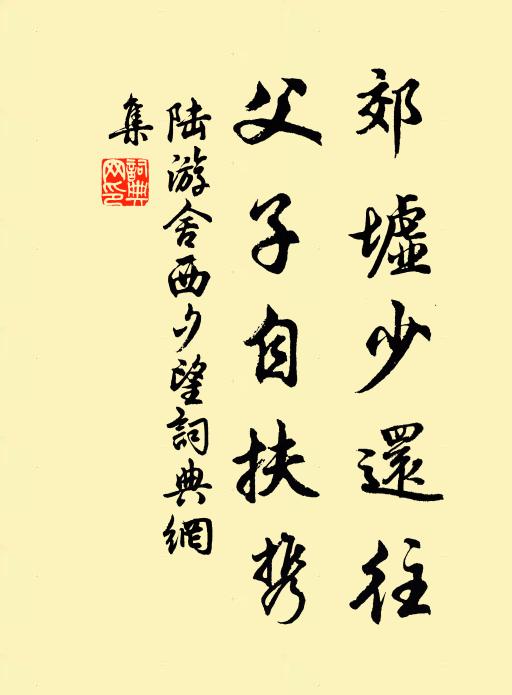 郊墟少還往
父子自扶携
陆游舍西夕望詞典網
集
詞典
网印